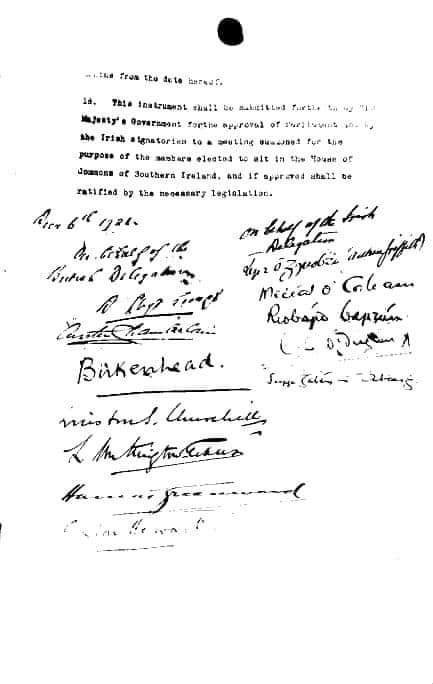 from the date hereof.
18. This instrument shall be submitted forthwith by His
Majesty's Government forthe approval of Parliament and by
the Irish signatories to a meeting summoned for the
purpose of the members elected to sit in the House of
Commons of Southern Ireland, and if approved shall be
ratified by the necessary legislation.
Decr 6th 1921.
On behalf of the
British Delegation
D Lloyd George
Austen Chamberlain
Birkenhead.
Winston S. Churchill
L Worthington-Evans
Hamar Greenwood
Gordon Hewart
On behalf of the Irish
Delegation
Art Ó Gríobhtha (Arthur Griffith)
Mícéal Ó Coileain
Riobárd Bartún